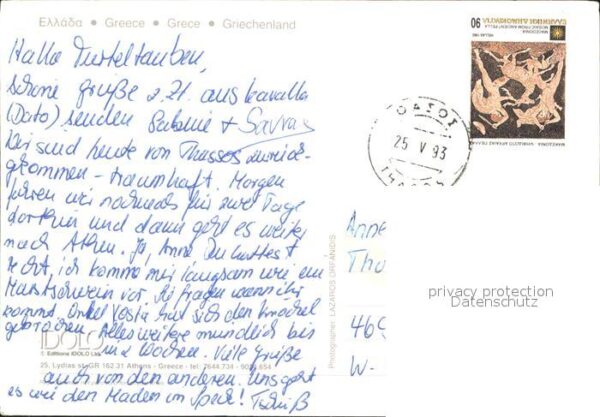 Ελλάδα • Greece • Grece • Griechenland
Hallo Turteltauben,
schöne Grüße z. Zt. aus Kavalla
(Dato) senden Sabine + Savvas
Wir sind heute von Thassos zurück-
gekommen - traumhaft. Morgen
fahren wir nochmals für zwei Tage
dorthin und dann geht es weiter
nach Athen. Ja, Anne, Du hattest
recht, ich komme mir langsam wie ein
Mastschwein vor. Sie fragen wann ihr
kommt. Onkel Kosta hat sich den Knöchel
gebrochen. Alles weitere mündlich bis
in 2 Wochen. Viele Grüße
auch von den anderen. Uns geht
es wie den Maden im Speck! Tschüß
IDOLO
© Editions IDOLO Ltd
25, Lydias str. GR 162 31 Athens - Greece - tel: 7644.734 - 9028.654
Photographer: LAZAROS ORFANIDIS
90
ΕΛΛΗΝΙΚΗ ΔΗΜΟΚΡΑΤΙΑ
MACEDONIA
MOSAIC FROM ANCIENT PELLA
HELLAS 1992
ΜΑΚΕΔΟΝΙΑ - ΨΗΦΙΔΩΤΟ ΑΡΧΑΙΑΣ ΠΕΛΛΑΣ
ΘΑΣΟΣ
25 V 93
Anne
Tho
469
W-
privacy protection
Datenschutz